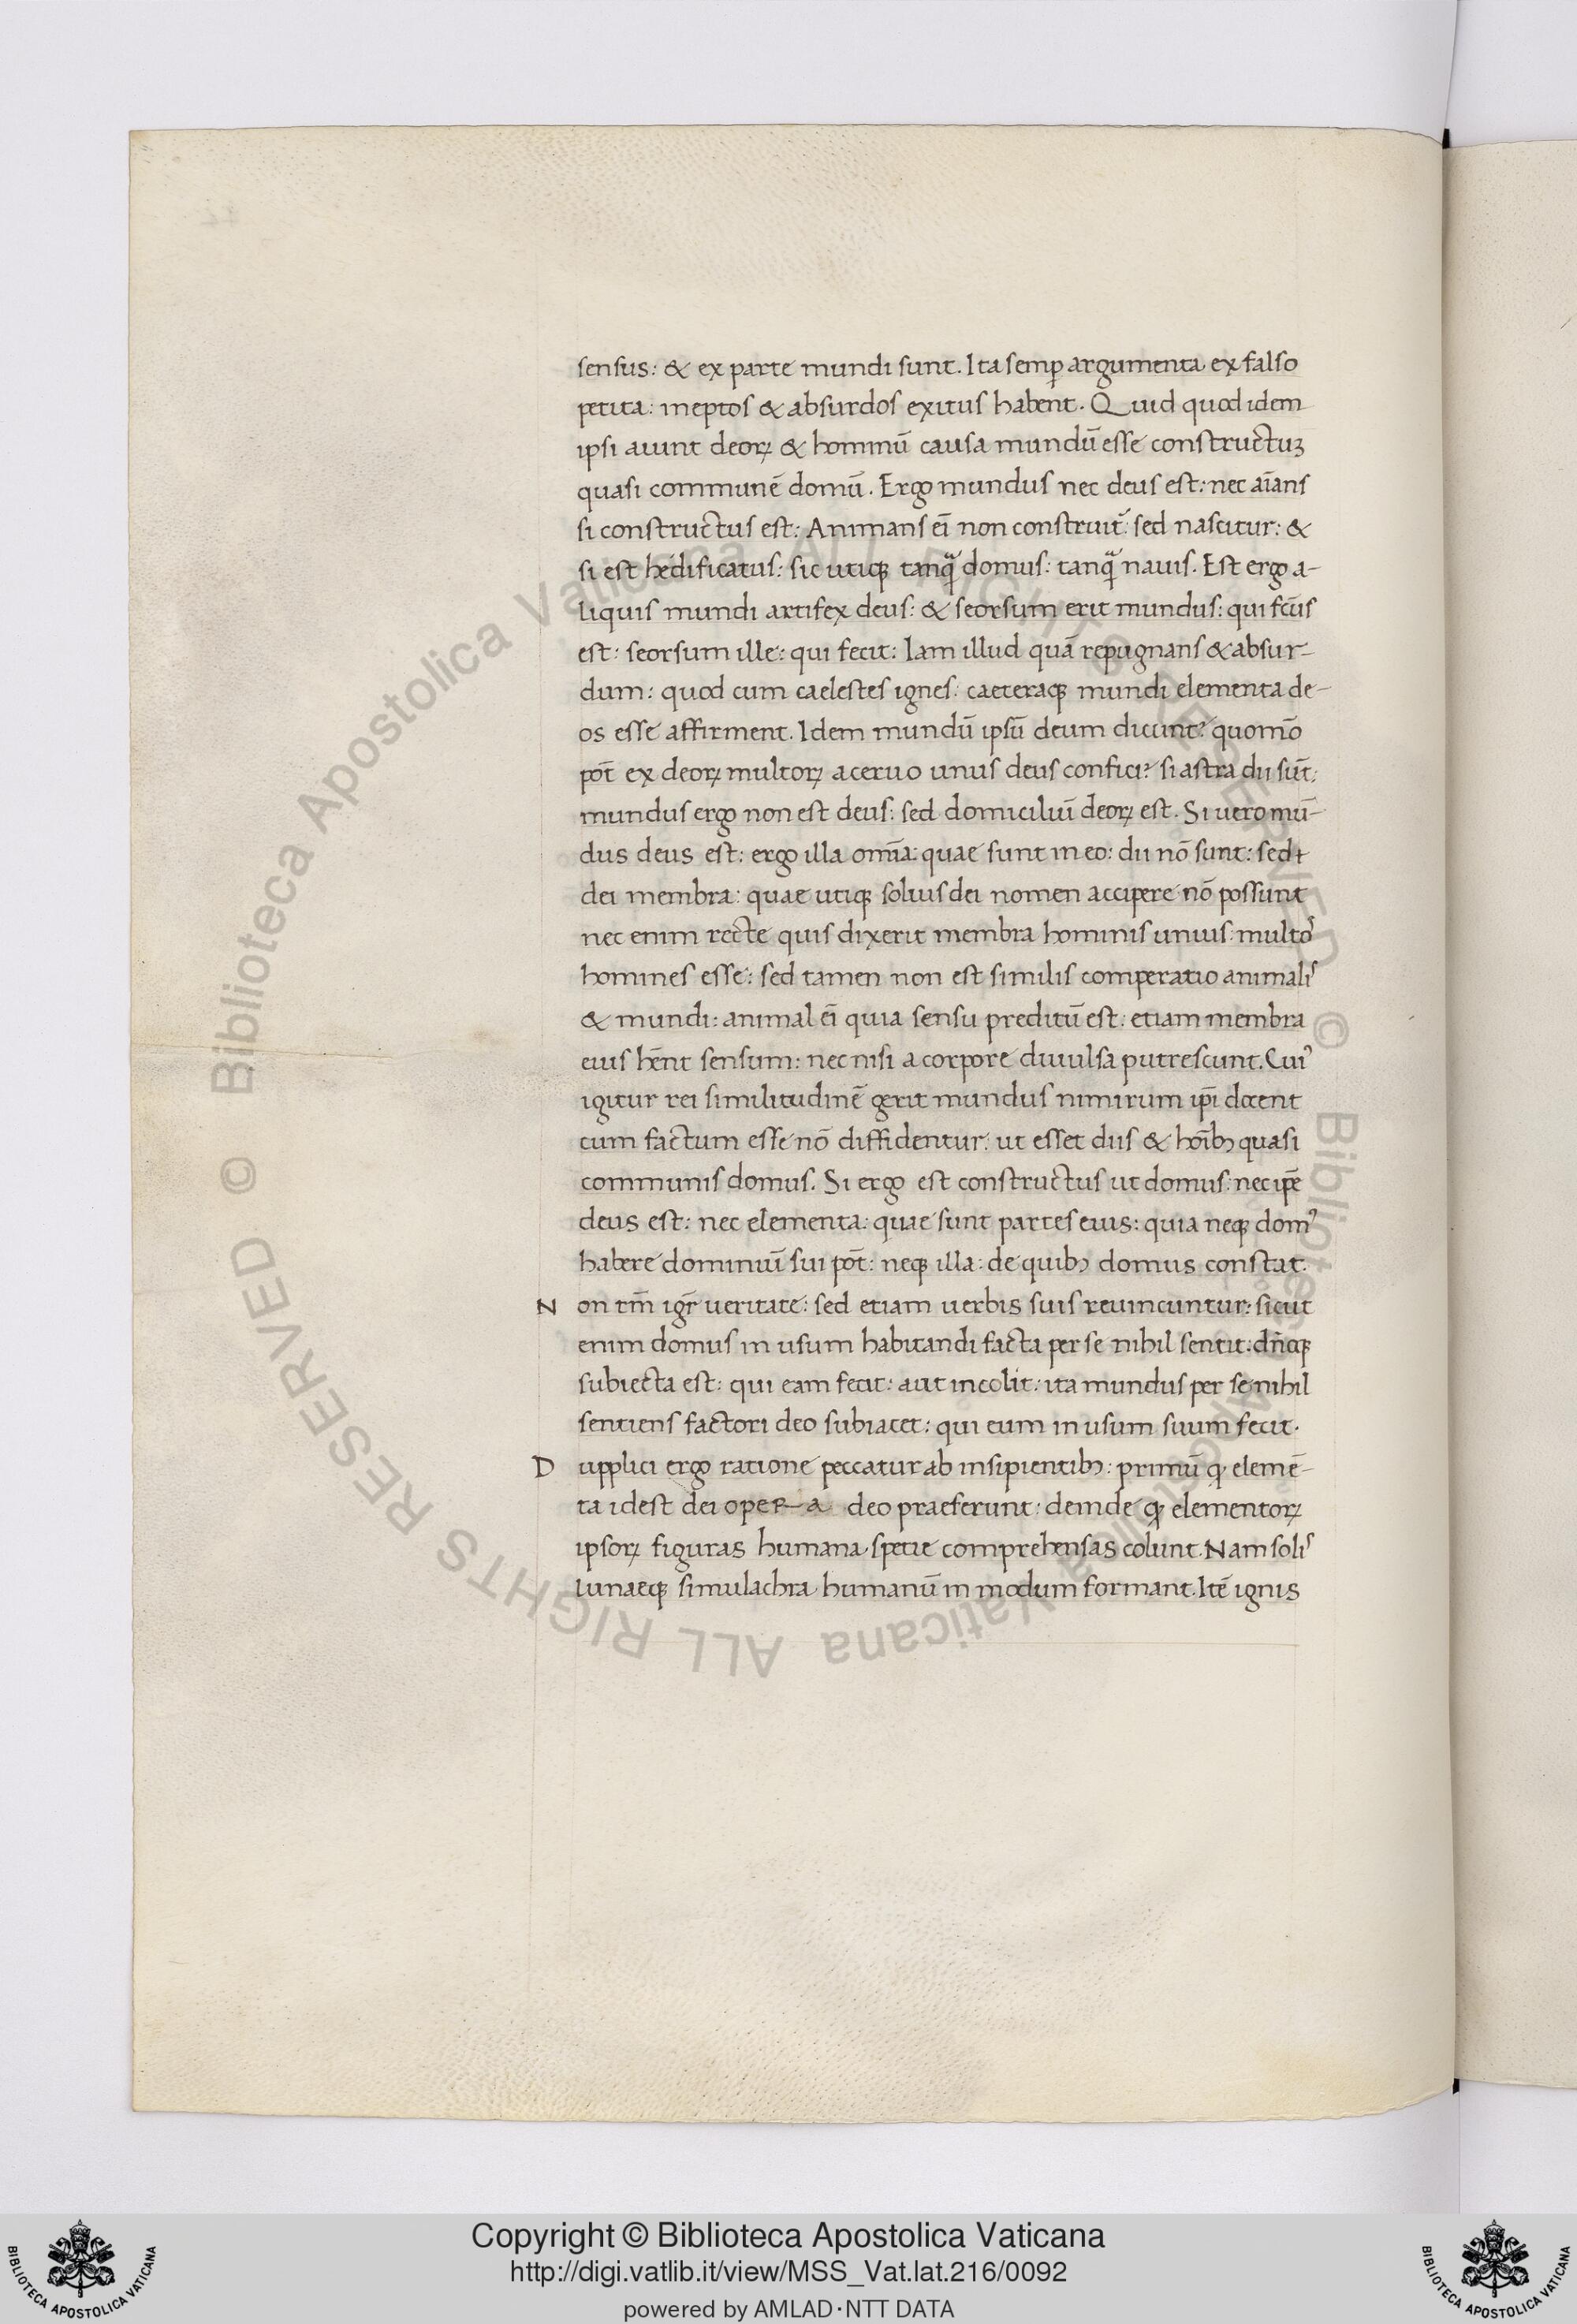 sensus: & ex parte mundi sunt. Ita semꝑ argumenta ex falso
petita: ineptos & absurdos exitus habent. Quid quod idem
ipsi aiunt deoꝝ & hominū causa mundū esse constructuꝫ
quasi communē domū. Ergo mundus nec deus est: nec aīans
si constructus est: Animans eī non construit᷑: sed nascitur: &
si est hędificatus: sic utiqꝫ tanq̄ domus: tanq̄ nauis. Est ergo a-
liquis mundi artifex deus: & seorsum erit mundus: qui fc̄us
est: seorsum ille: qui fecit: Iam illud quā repugnans & absur-
dum: quod cum caelestes ignes: caeteraqꝫ mundi elementa de-
os esse affirment. Idem mundū ipsū deum dicunt? quomō
pōt ex deoꝝ multoꝝ aceruo unus deus confici? si astra dii sūt:
mundus ergo non est deus: sed domiciliū deoꝝ est. Si uero mū-
dus deus est: ergo illa omīa: quae sunt in eo: dii nō sunt: sed
dei membra: quae utiqꝫ solius dei nomen accipere nō possunt
nec enim recte quis dixerit membra hominis unius: multos
homines esse: sed tamen non est similis comperatio animalis
& mundi: animal eī quia sensu preditū est: etiam membra
eius hēnt sensum: nec nisi a corpore diuulsa putrescunt. Cuiꝰ
igitur rei similitudinē gerit mundus nimirum ip̄i docent
cum factum esse nō diffidentur: ut esset diis & hoībꝫ quasi
communis domus. Si ergo est constructus ut domus: nec ip̄e
deus est: nec elementa: quae sunt partes eius: quia neqꝫ domꝰ
habere dominiū sui pōt: neqꝫ illa: de quibꝫ domus constat.
Non tm̄ igr̄ ueritate: sed etiam uerbis suis reuincuntur: sicut
enim domus in usum habitandi facta per se nihil sentit: dn̄oqꝫ
subiecta est: qui eam fecit: aut incolit: ita mundus per se nihil
sentiens factori deo subiacet: qui eum in usum suum fecit.
Dupplici ergo ratione peccatur ab insipientibꝫ: primū qꝫ elemē-
ta idest dei opera deo praeferunt: deinde qꝫ elementoꝝ
ipsoꝝ figuras humana spetie comprehensas colunt. Nam solis
lunaeqꝫ simulachra humanū in modum formant. Itē ignis
© Biblioteca Apostolica Vaticana ALL RIGHTS RESERVED
© Biblioteca Apostolica Vaticana ALL RIGHTS RESERVED
Copyright © Biblioteca Apostolica Vaticana
http://digi.vatlib.it/view/MSS_Vat.lat.216/0092
powered by AMLAD·NTT DATA
BIBLIOTECA APOSTOLICA VATICANA
BIBLIOTECA APOSTOLICA VATICANA